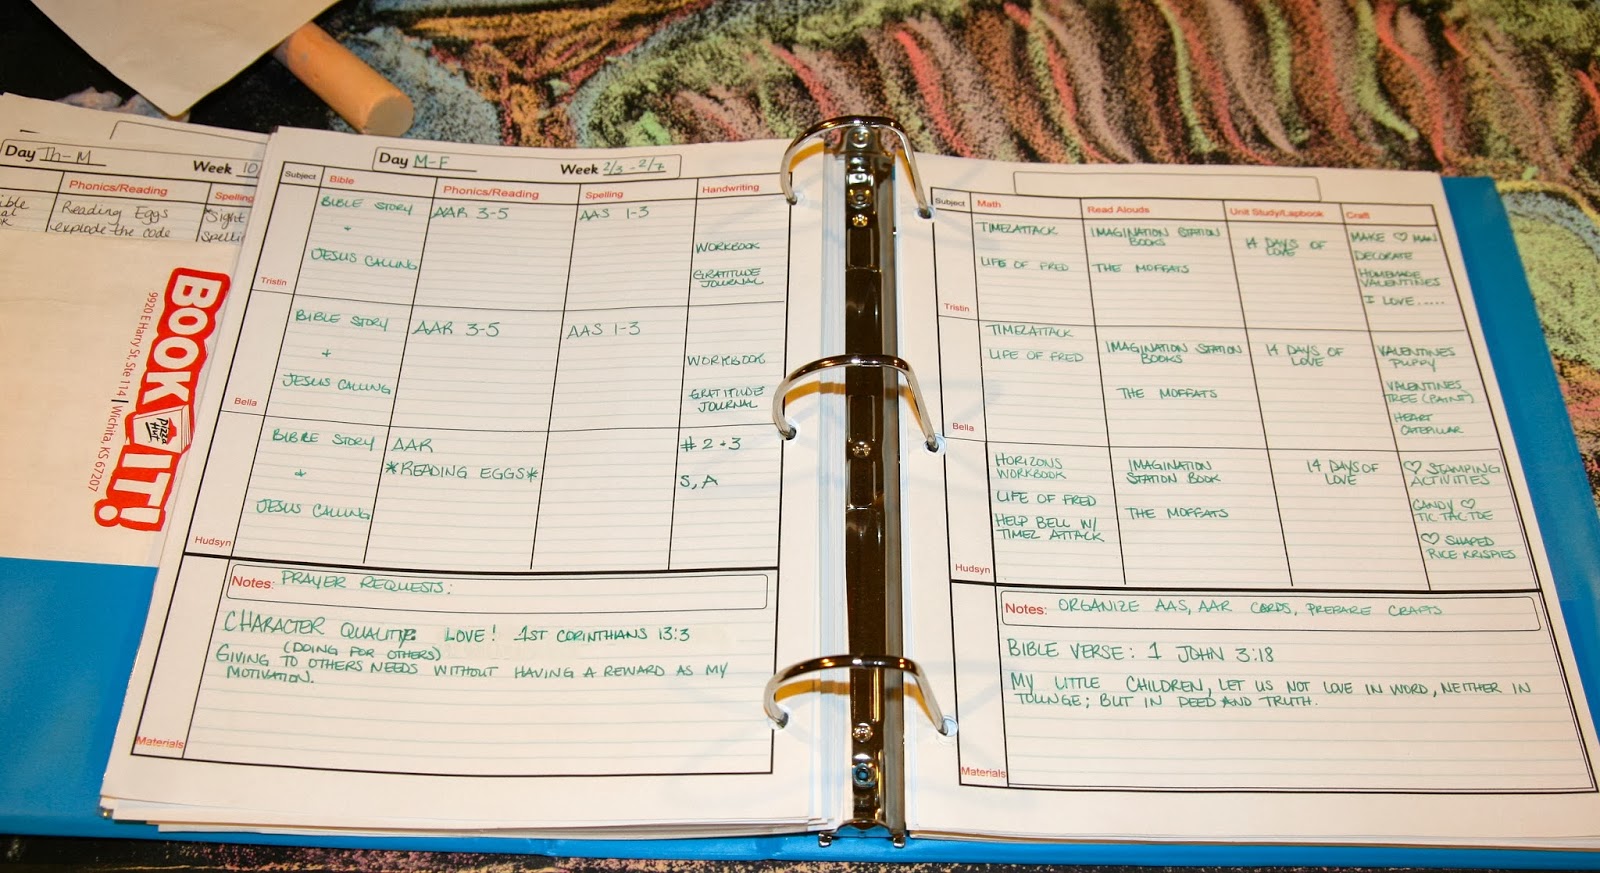 Day Th-M
Week 10
Phonics/Reading
Spelling
Reading Eggs
explode the code
*Sight
spelli
BOOK IT!
Pizza Hut
9920 E Harry St, Ste 114 | Wichita, KS 67207
Day M-F
Week 2/3 - 2/7
Subject
Bible
Phonics/Reading
Spelling
Handwriting
Tristin
BIBLE STORY
+
JESUS CALLING
AAR 3-5
AAS 1-3
WORKBOOK
GRATITUDE
JOURNAL
Bella
BIBLE STORY
+
JESUS CALLING
AAR 3-5
AAS 1-3
WORKBOOK
GRATITUDE
JOURNAL
Hudsyn
BIBLE STORY
+
JESUS CALLING
AAR
*READING EGGS*
# 2 + 3
S, A
Notes: PRAYER REQUESTS:
CHARACTER QUALITY: LOVE! 1ST CORINTHIANS 13:3
(DOING FOR OTHERS)
GIVING TO OTHERS NEEDS WITHOUT HAVING A REWARD AS MY
MOTIVATION.
Materials
Subject
Math
Read Alouds
Unit Study/Lapbook
Craft
Tristin
TIMEZATTACK
LIFE OF FRED
IMAGINATION STATION
BOOKS
THE MOFFATS
14 DAYS OF
LOVE
MAKE ♡ MAN
DECORATE
HOMEMADE
VALENTINES
I LOVE......
Bella
TIMEZATTACK
LIFE OF FRED
IMAGINATION STATION
BOOKS
THE MOFFATS
14 DAYS OF
LOVE
VALENTINES
PUPPY
VALENTINES
TREE (PAINT)
HEART
CATEPILLAR
Hudsyn
HORIZONS
WORKBOOK
LIFE OF FRED
HELP BELL W/
TIMEZ ATTACK
IMAGINATION
STATION BOOK
THE MOFFATS
14 DAYS OF
LOVE
♡ STAMPING
ACTIVITIES
CANDY ♡
TIC TAC TOE
♡ SHAPED
RICE KRISPIES
Notes: ORGANIZE AAS, AAR CARDS, PREPARE CRAFTS
BIBLE VERSE: 1 JOHN 3:18
MY LITTLE CHILDREN, LET US NOT LOVE IN WORD, NEITHER IN
TOUNGE; BUT IN DEED AND TRUTH.
Materials